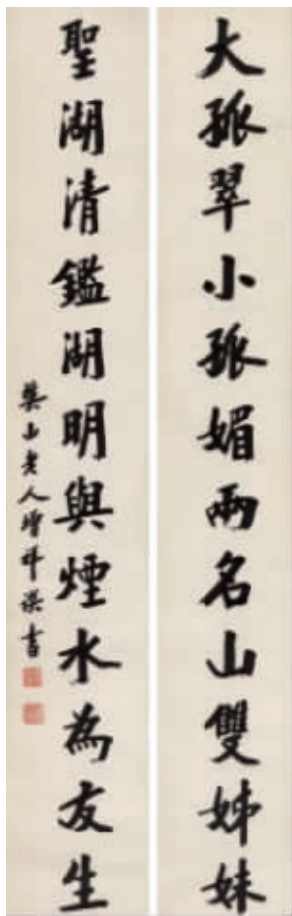 大孤翠小孤媚兩名山雙姊妹
聖湖清鑑湖明與煙水為友生
樊山老人增祥撰書